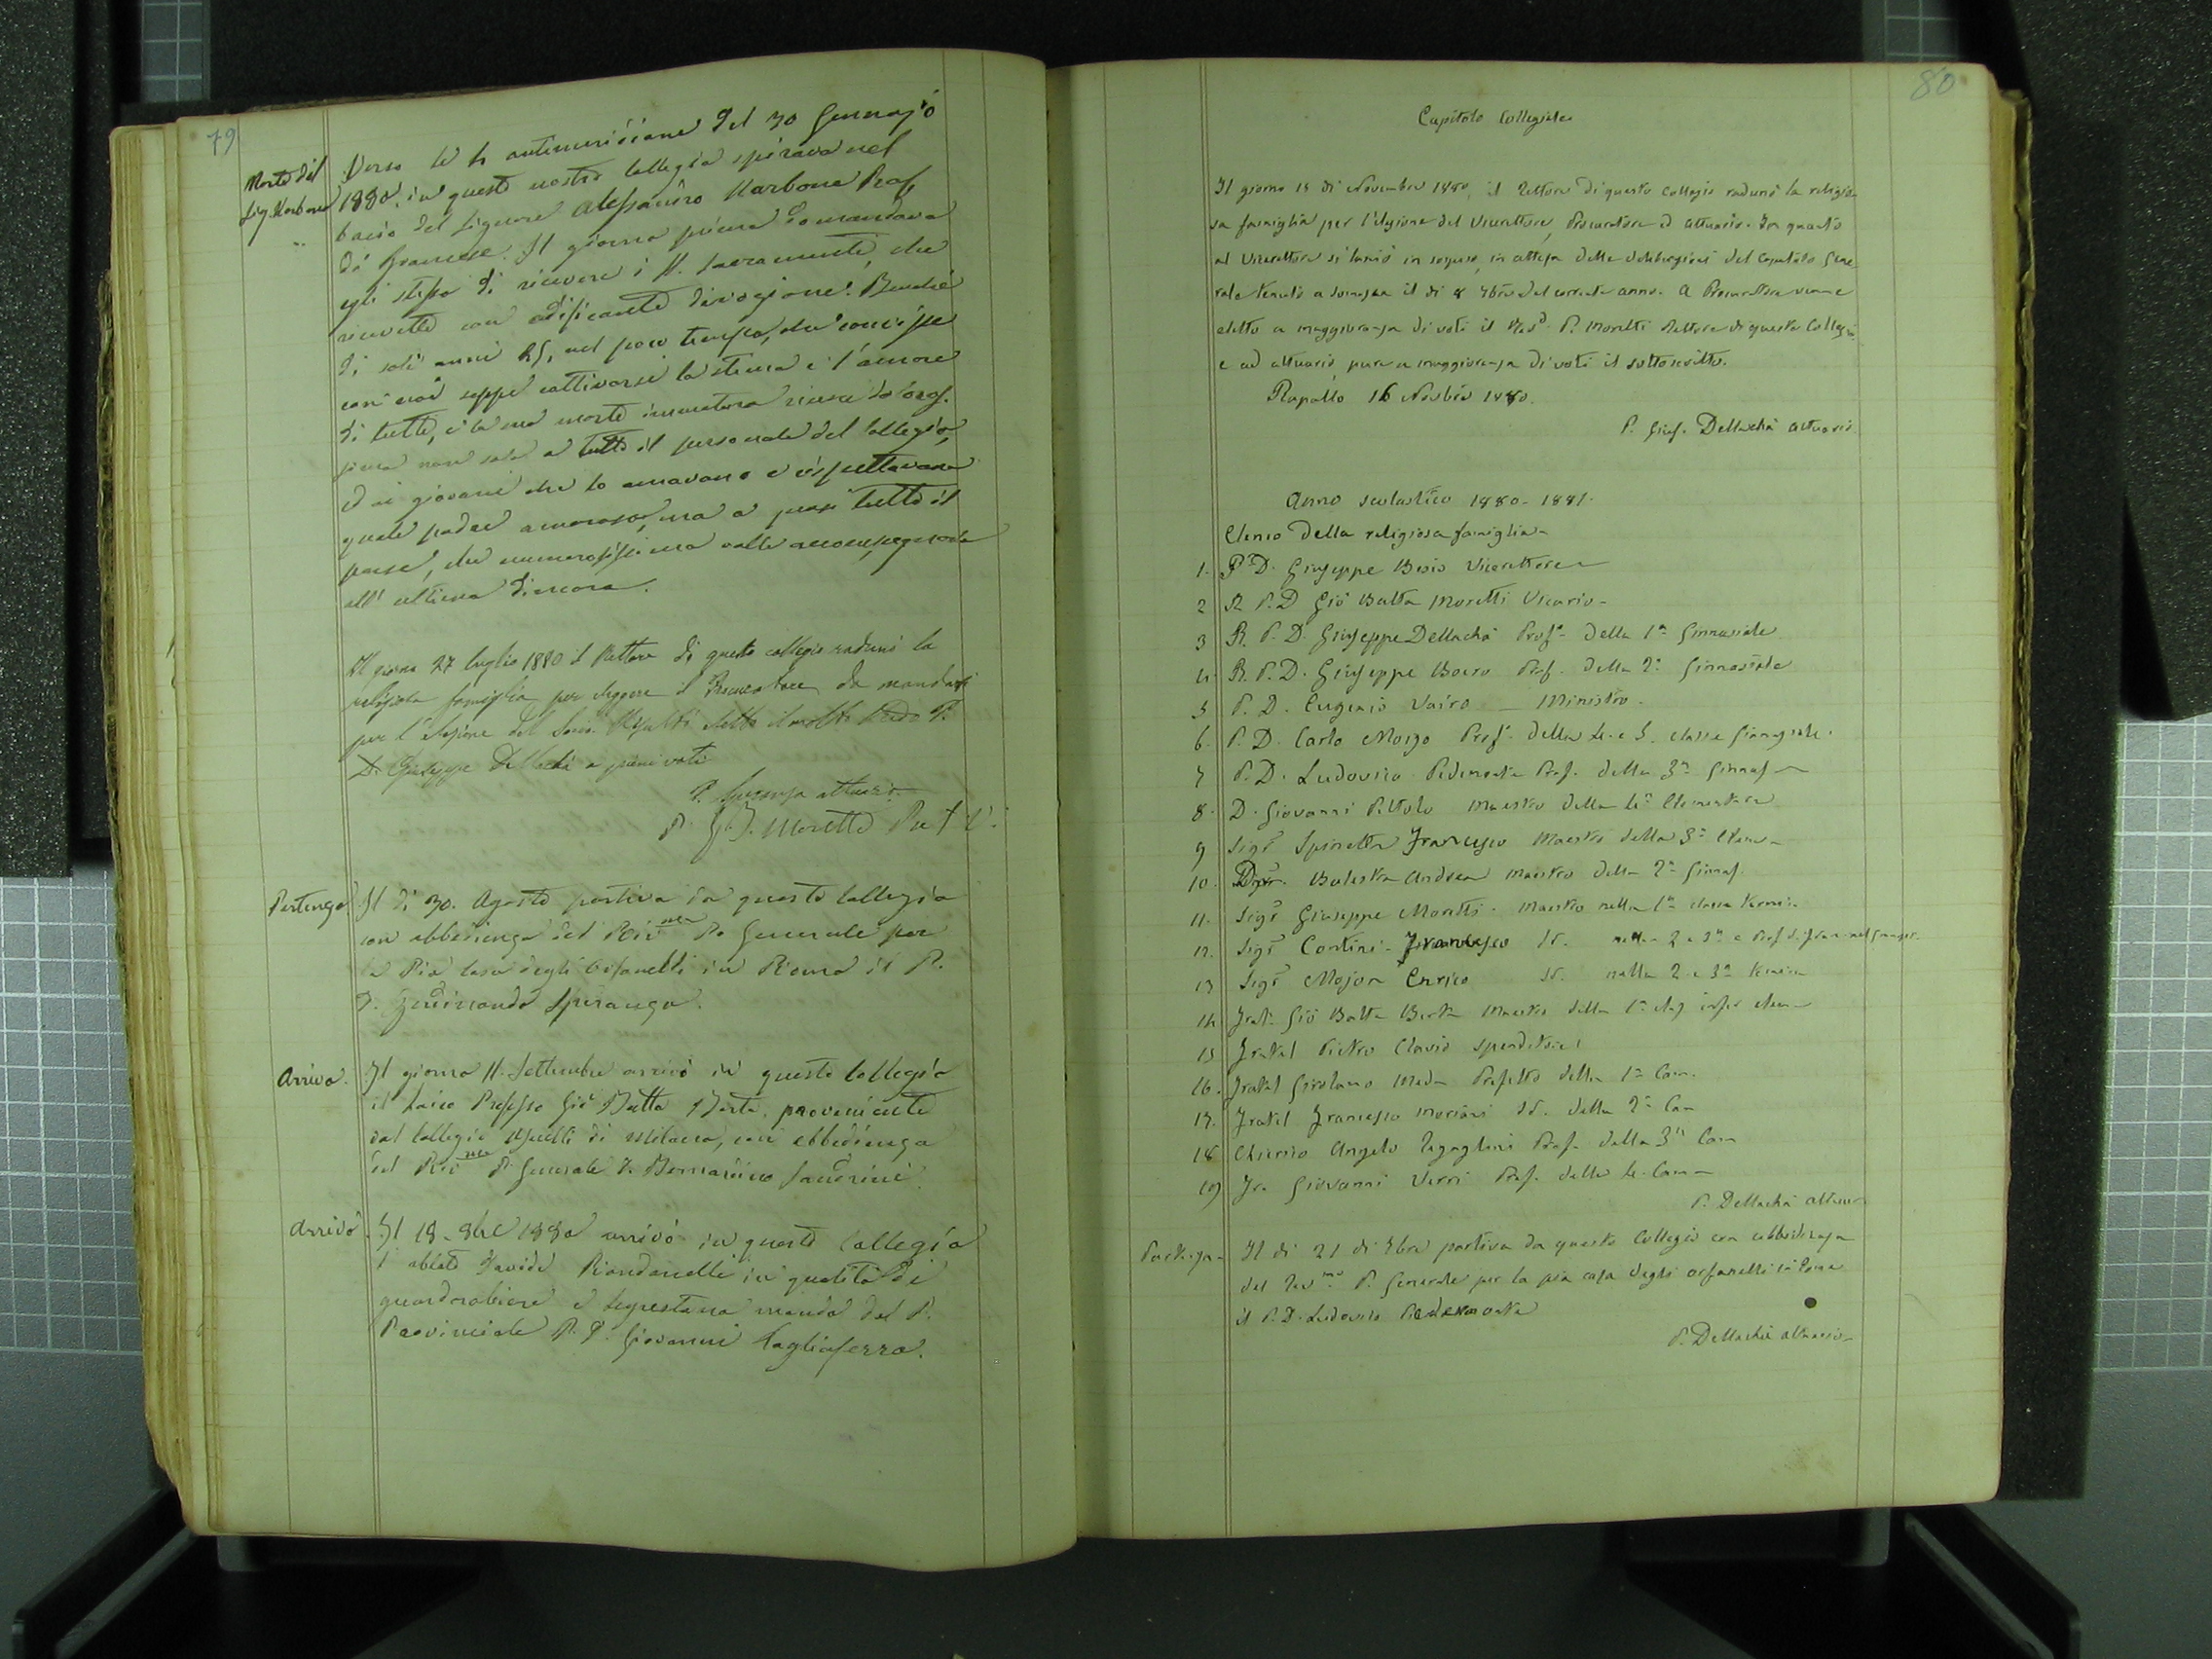 79
Morte del
Sig. Narbone
Verso le 4 antimeridiane del 30 Gennajo
1880, in questo nostro Collegio spirava nel
bacio del Signore Alessandro Narbone Prof.
di francese. Il giorno prima domandava
egli stesso di ricevere i SS. Sacramenti, che
ricevette con edificante divozione. Benché
di soli anni 25, nel poco tempo, che convisse
con noi seppe cattivarsi la stima e l'amore
di tutti, e la sua morte immatura riuscì doloro-
sissima non solo a tutto il personale del Collegio,
ed ai giovani che lo amavano e rispettavano
quale padre amoroso, ma a quasi tutto il
paese, che numerosissimo volle accompagnarlo
all' ultima dimora.
Il giorno 27 luglio 1880 il Rettore di questo collegio radunò la
religiosa famiglia per eleggere il Procuratore da mandarsi
per l'elezione del Socio. Risultò eletto il molto Rdo P.
D. Giuseppe Dellachà a pieni voti
P. Speranza attuario
P. G. B. Moretti
Partenza
Il dì 30. Agosto partiva da questo Collegio
con obbedienza del Rev mo P. Generale per
la Pia Casa degli Orfanelli in Roma il P.
D. Ferdinando Speranza.
Arrivo.
Il giorno 11. Settembre arrivò in questo Collegio
il Laico Professo Gio Batta Berta, proveniente
dal Collegio Usuelli di Milano, con obbedienza
del Rev mo P. Generale D. Bernardino Sandrini.
Arrivo
Il 18 8bre 1880 arrivò in questo Collegio
l' oblato Davide Riondanelli in qualità di
guardarobiere e segrestano mandò del P.
Provinciale P. D. Giovanni Tagliaferro.
80
Capitolo Collegiale
Il giorno 15 di Novembre 1880, il Rettore di questo Collegio radunò la religio
sa famiglia per l'elezione del Vicerettore, Procuratore ed attuario. In quanto
al Vicerettore si lasciò in sospeso, in attesa delle deliberazioni del Capitolo Gene
rale tenuto a Somasca il dì 8 9bre del corrente anno. A Procuratore venne
eletto a maggioranza di voti il Rev.do P. Moretti Rettore di questo Collegio
e ad attuario, pure a maggioranza di voti il sottoscritto.
Rapallo 16 Novbre 1880.
P. Gius. Dellachà attuario.
Anno scolastico 1880-1881.
Elenco della religiosa famiglia
1. P. D. Giuseppe Besio Vicerettore
2 R. P. D Gio Batta Moretti Vicario
3 R. P. D. Giuseppe Dellachà Prof. della 1a Ginnasiale
4. R. P. D. Giuseppe Boero Prof. della 2a Ginnasiale
5 P. D. Eugenio Vairo — Ministro.
6. P. D. Carlo Moizo Prof. della 4. e 5. classe Ginnasiale.
7 P. D. Ludovico Pedemonte Prof. della 3a Ginnas
8. D. Giovanni Pittolo Maestro della 4a Elementare
9 Sigr Spinetta Francesco Maestro della 3a Elem
10. Balestra Andrea Maestro della 2a Ginnas.
11. Sigr Giuseppe Moretti. Maestro nella 1a classe tecnica
12. Sigr Contini Francesco Id. nella 2 e 3a e Prof. di fran. nel Ginnasio.
13 Sigr Major Enrico Id. nella 2 e 3a tecnica
14. Fratel Gio Batta Berta Maestro della 1a clas infer elem
15 Fratel Pietro Clavio spenditore
16. Fratel Girolamo Meda Prefetto della 1a Cam.
17. Fratel Francesco Mariani Id. della 2a Cam
18 Chierico Angelo Pref. della 3a Cam
19 Fr. Giovanni Verri Pref. della 4. Cam
P. Dellachà attuario
Partenza
Il dì 21 di 9bre partiva da questo Collegio con obbedienza
del Rev mo P. Generale per la pia casa degli orfanelli in Roma
il P. D. Ludovico Pedemonte
P. Dellachà attuario